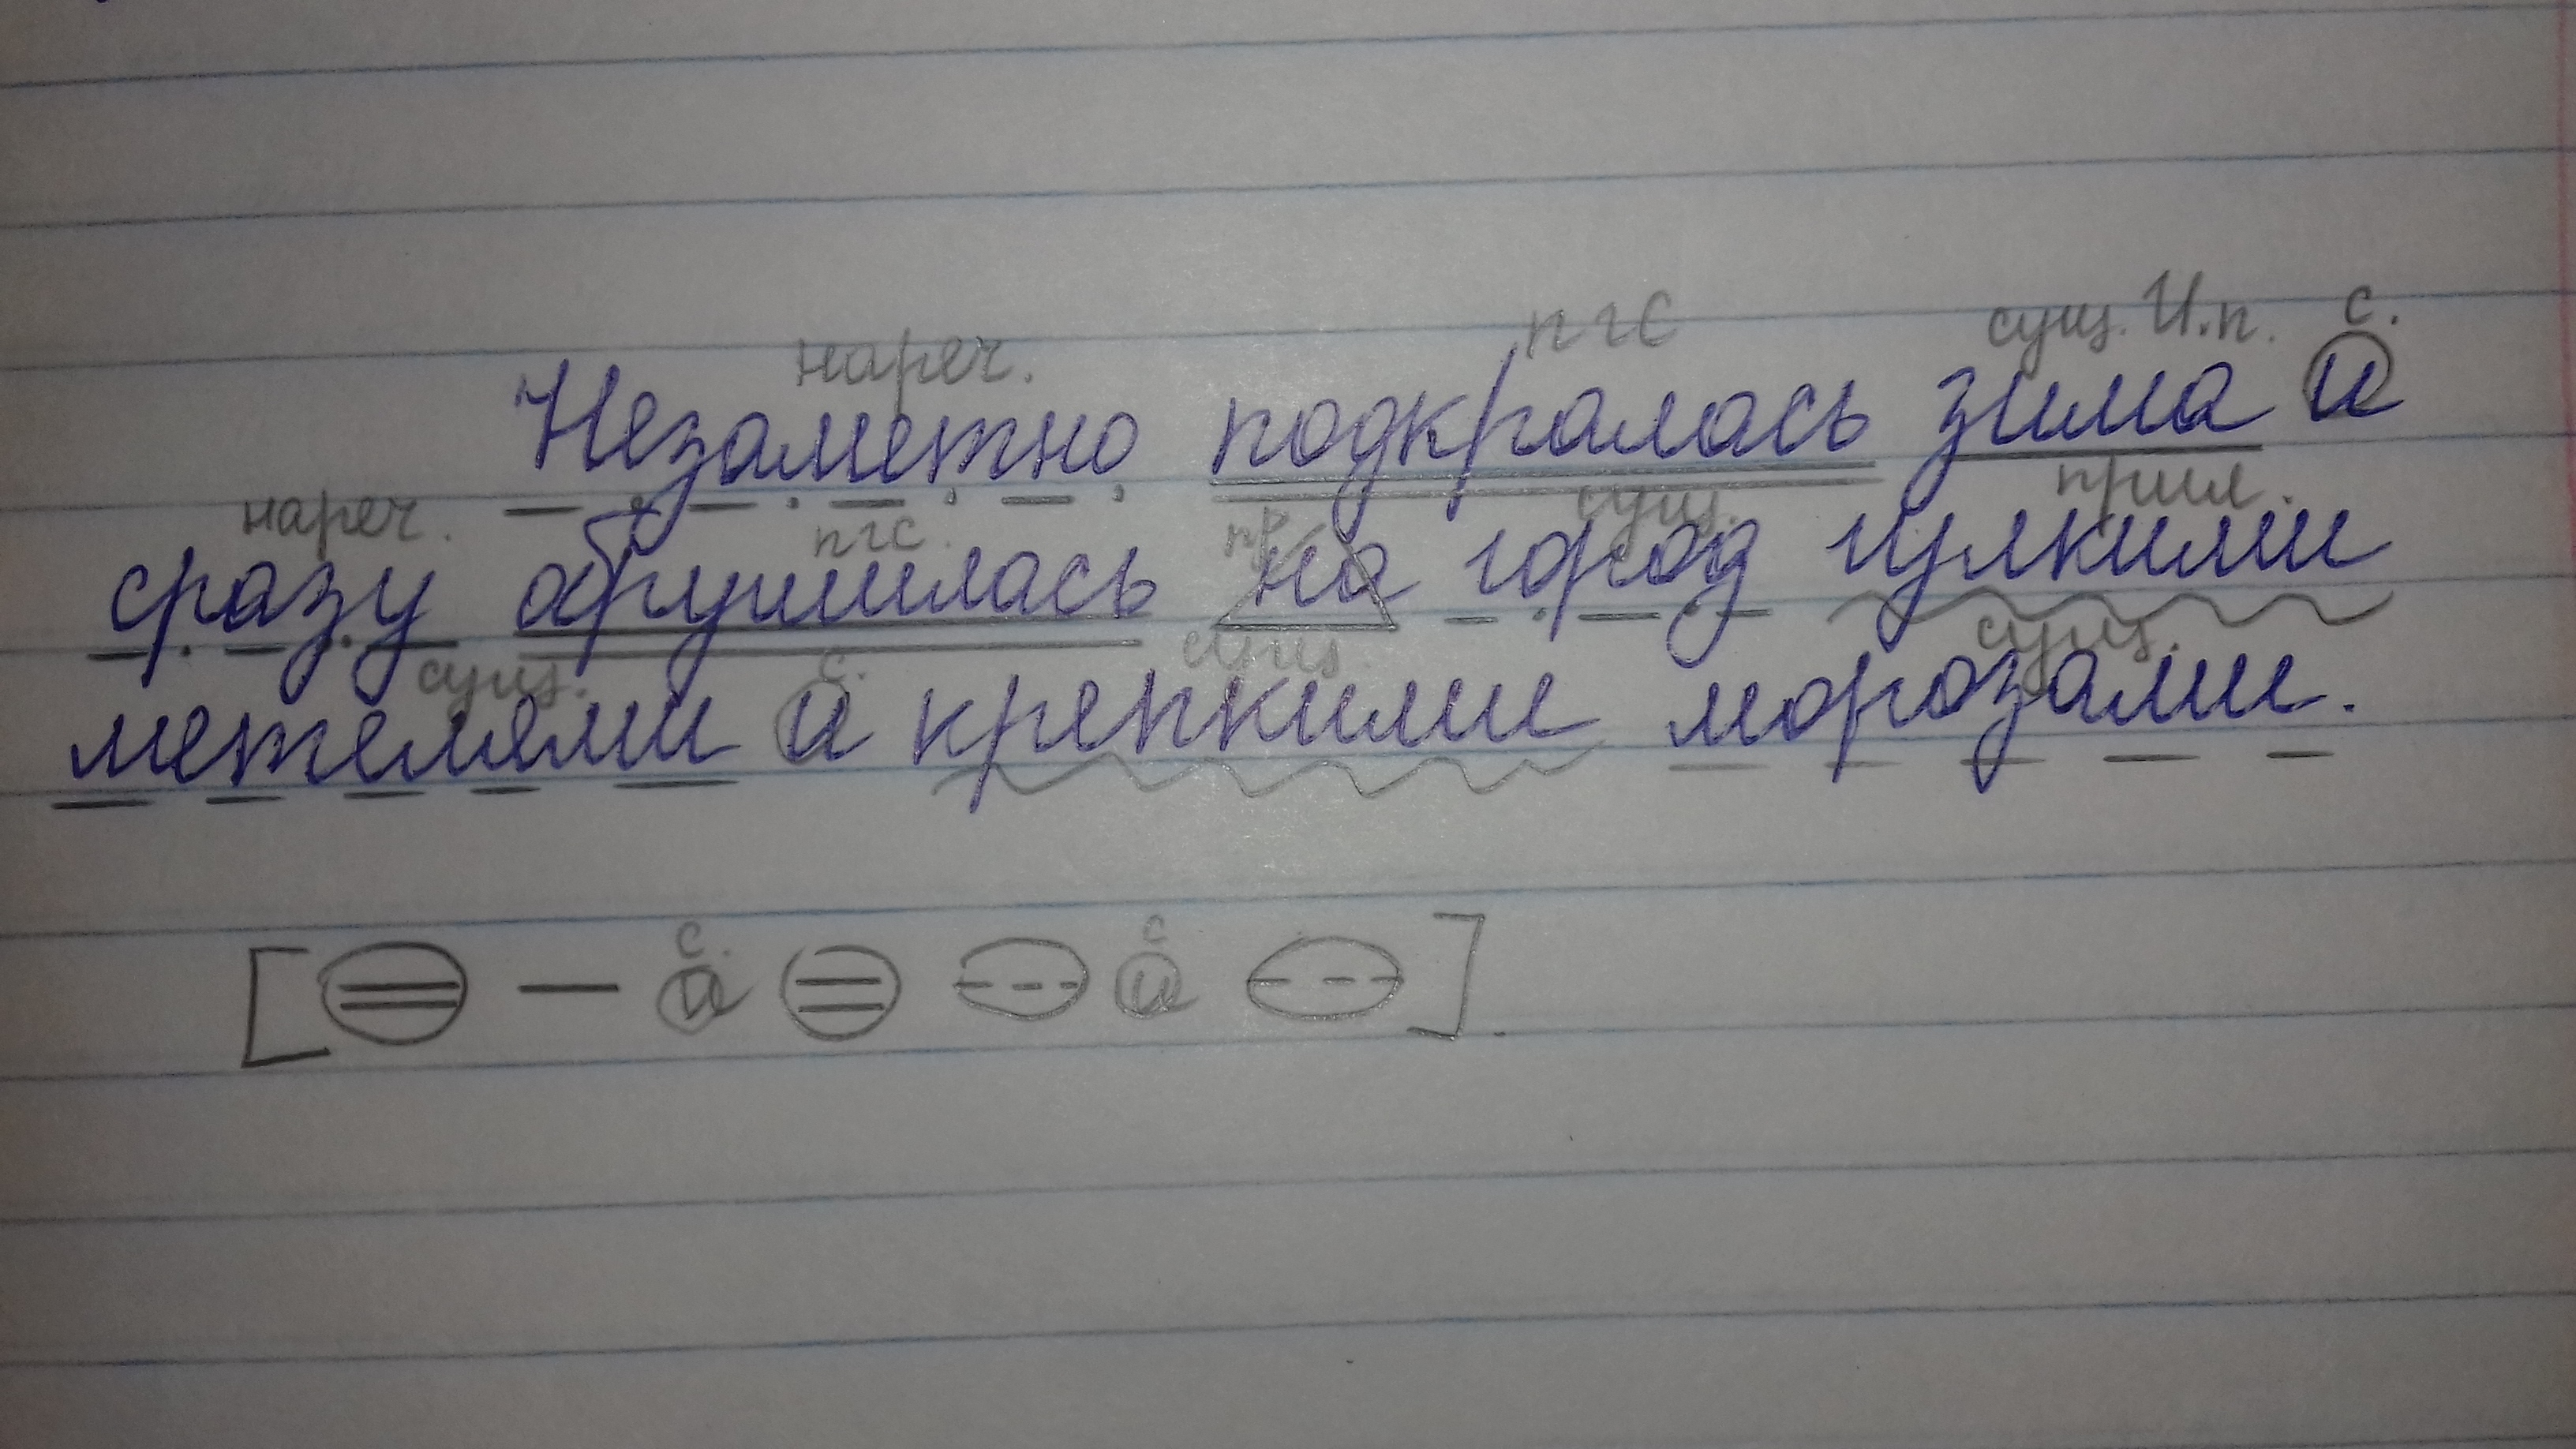 нареч. пгс сущ. И.п. с.
Незаметно подкралась зима и
нареч. пгс. пр. сущ. прил.
сразу обрушилась на город гулкими
сущ. с. сущ. сущ.
метелями и крепкими морозами.
с. с
и и